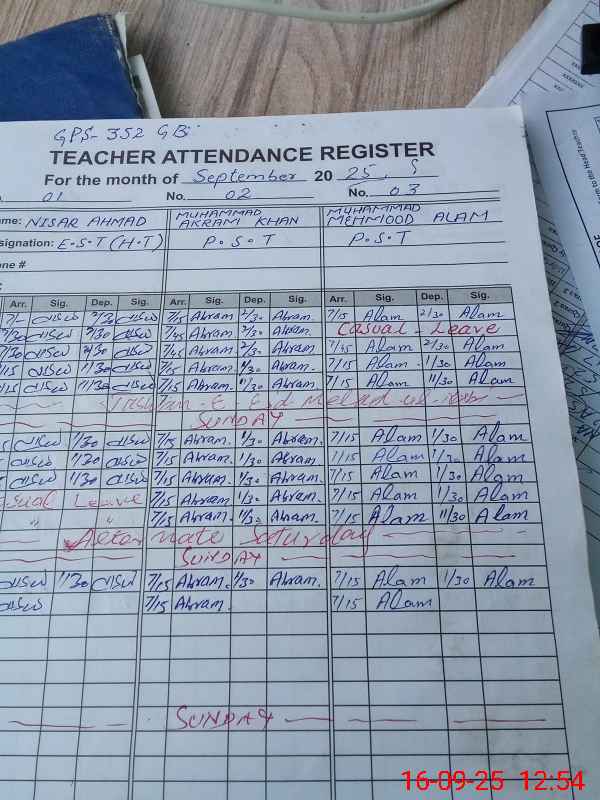 GPS-352 GB
TEACHER ATTENDANCE REGISTER
For the month of September 2025
01 No. 02 No. 03
ame: NISAR AHMAD MUHAMMAD AKRAM KHAN MUHAMMAD MEHMOOD ALAM
signation: E.S.T (H.T) P.S.T P.S.T
one #
Arr. Sig. Dep. Sig. Arr. Sig. Dep. Sig. Arr. Sig. Dep. Sig.
7/15 Akram 2/30 Akram 7/15 Alam 2/30 Alam
7/45 Akram 2/30 Akram. Casual - Leave
7/45 Akram 2/30 Akram. 7/45 Alam 2/30 Alam
11/30 7/15 Akram. Akram. 7/15 Alam 11/30 Alam
11/30 7/15 Akram. 11/30 Akram. 7/15 Alam 11/30 Alam
SUNDAY
1/30 7/15 Akram. 1/30 Akram. 7/15 Alam 1/30 Alam
1/30 7/15 Akram. 1/30 Akram. Alam 1/30 Alam
1/30 7/15 Akram. 1/30 Akram. 7/15 Alam 1/30 Alam
asual Leave 7/15 Akram. 1/30 Akram. 7/15 Alam 1/30 Alam
" " 7/15 Akram. 11/30 Akram. 7/15 Alam 11/30 Alam
Alternate Saturday
SUNDAY
1/30 7/15 Akram. 1/30 Akram. 7/15 Alam 1/30 Alam
7/15 Akram. 7/15 Alam
SUNDAY
16-09-25 12:54